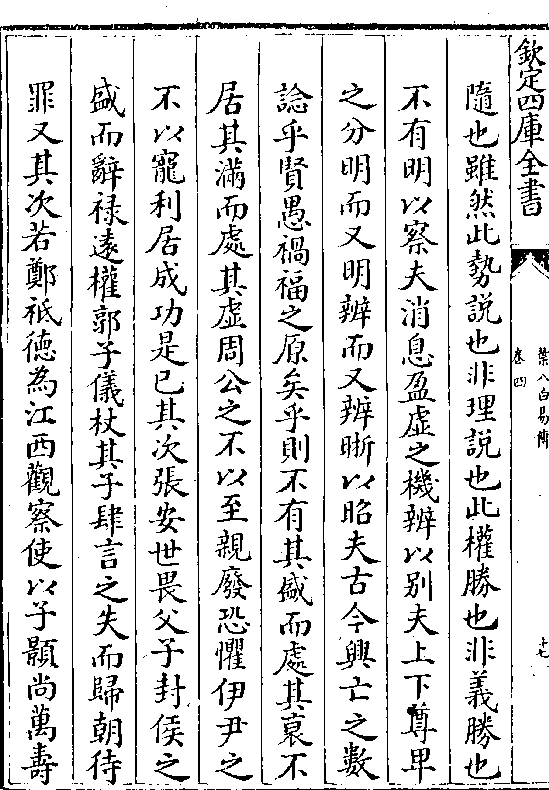 欽定四庫全書
葉八白易傳
卷四
十七
隨也雖然此勢説也非理説也此權勝也非義勝也
不有明以察夫消息盈虚之機辨以别夫上下尊卑
之分明而又明辨而又辨晣以昭夫古今興亡之數
諗乎賢愚禍福之原矣乎則不有其盛而處其衰不
居其滿而處其虚周公之不以至親廢恐懼伊尹之
不以寵利居成功是已其次張安世畏父子封侯之
盛而辭禄逺權郭子儀杖其子肆言之失而歸朝待
罪又其次若鄭祗德為江西觀察使以子顥尚萬壽